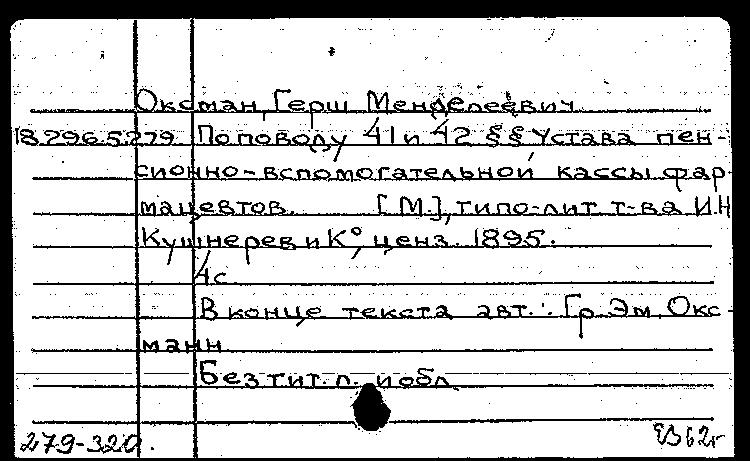 Оксман, Герш Менделеевич
18.296.5.279. По поводу 41 и 42 §§ Устава пен-
сионно-вспомогательной кассы фар-
мацевтов. [М.], типо-лит. т-ва И.Н.
Кушнерев и К°, ценз. 1895.
4 с.
В конце текста авт.: Гр. Эм. Окс-
манн
Без тит. л. и обл.
279-320.